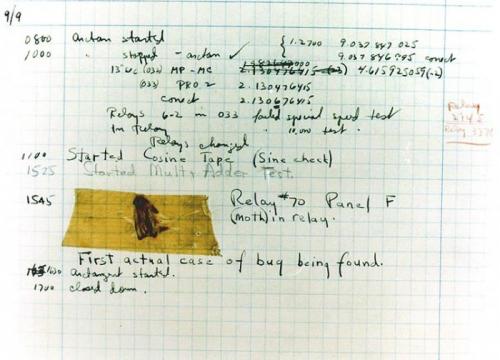 9/9
0800 Antan started
1000 " stopped - antan ✓
{ 1.2700 9.037 847 025
9.037 846 995 correct
13" uc (032) MP - MC 2.130476415 4.615925059(-2)
(033) PRO 2 2.130476415
correct 2.130676415
Relays 6-2 in 033 failed special speed test
In Relay " 10,000 test.
Relay
2145
Relay 3370
Relays changed
1100 Started Cosine Tape (Sine check)
1525 Started Mult + Adder Test.
1545 Relay #70 Panel F
(moth) in relay.
First actual case of bug being found.
1630 antangent started.
1700 closed down.